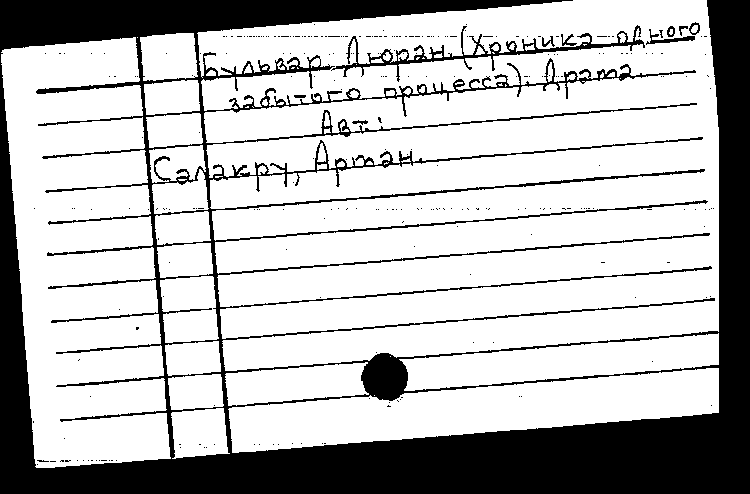 Бульвар Дюран. (Хроника одного
забытого процесса). Драма.
Авт.:
Салакру, Арман.